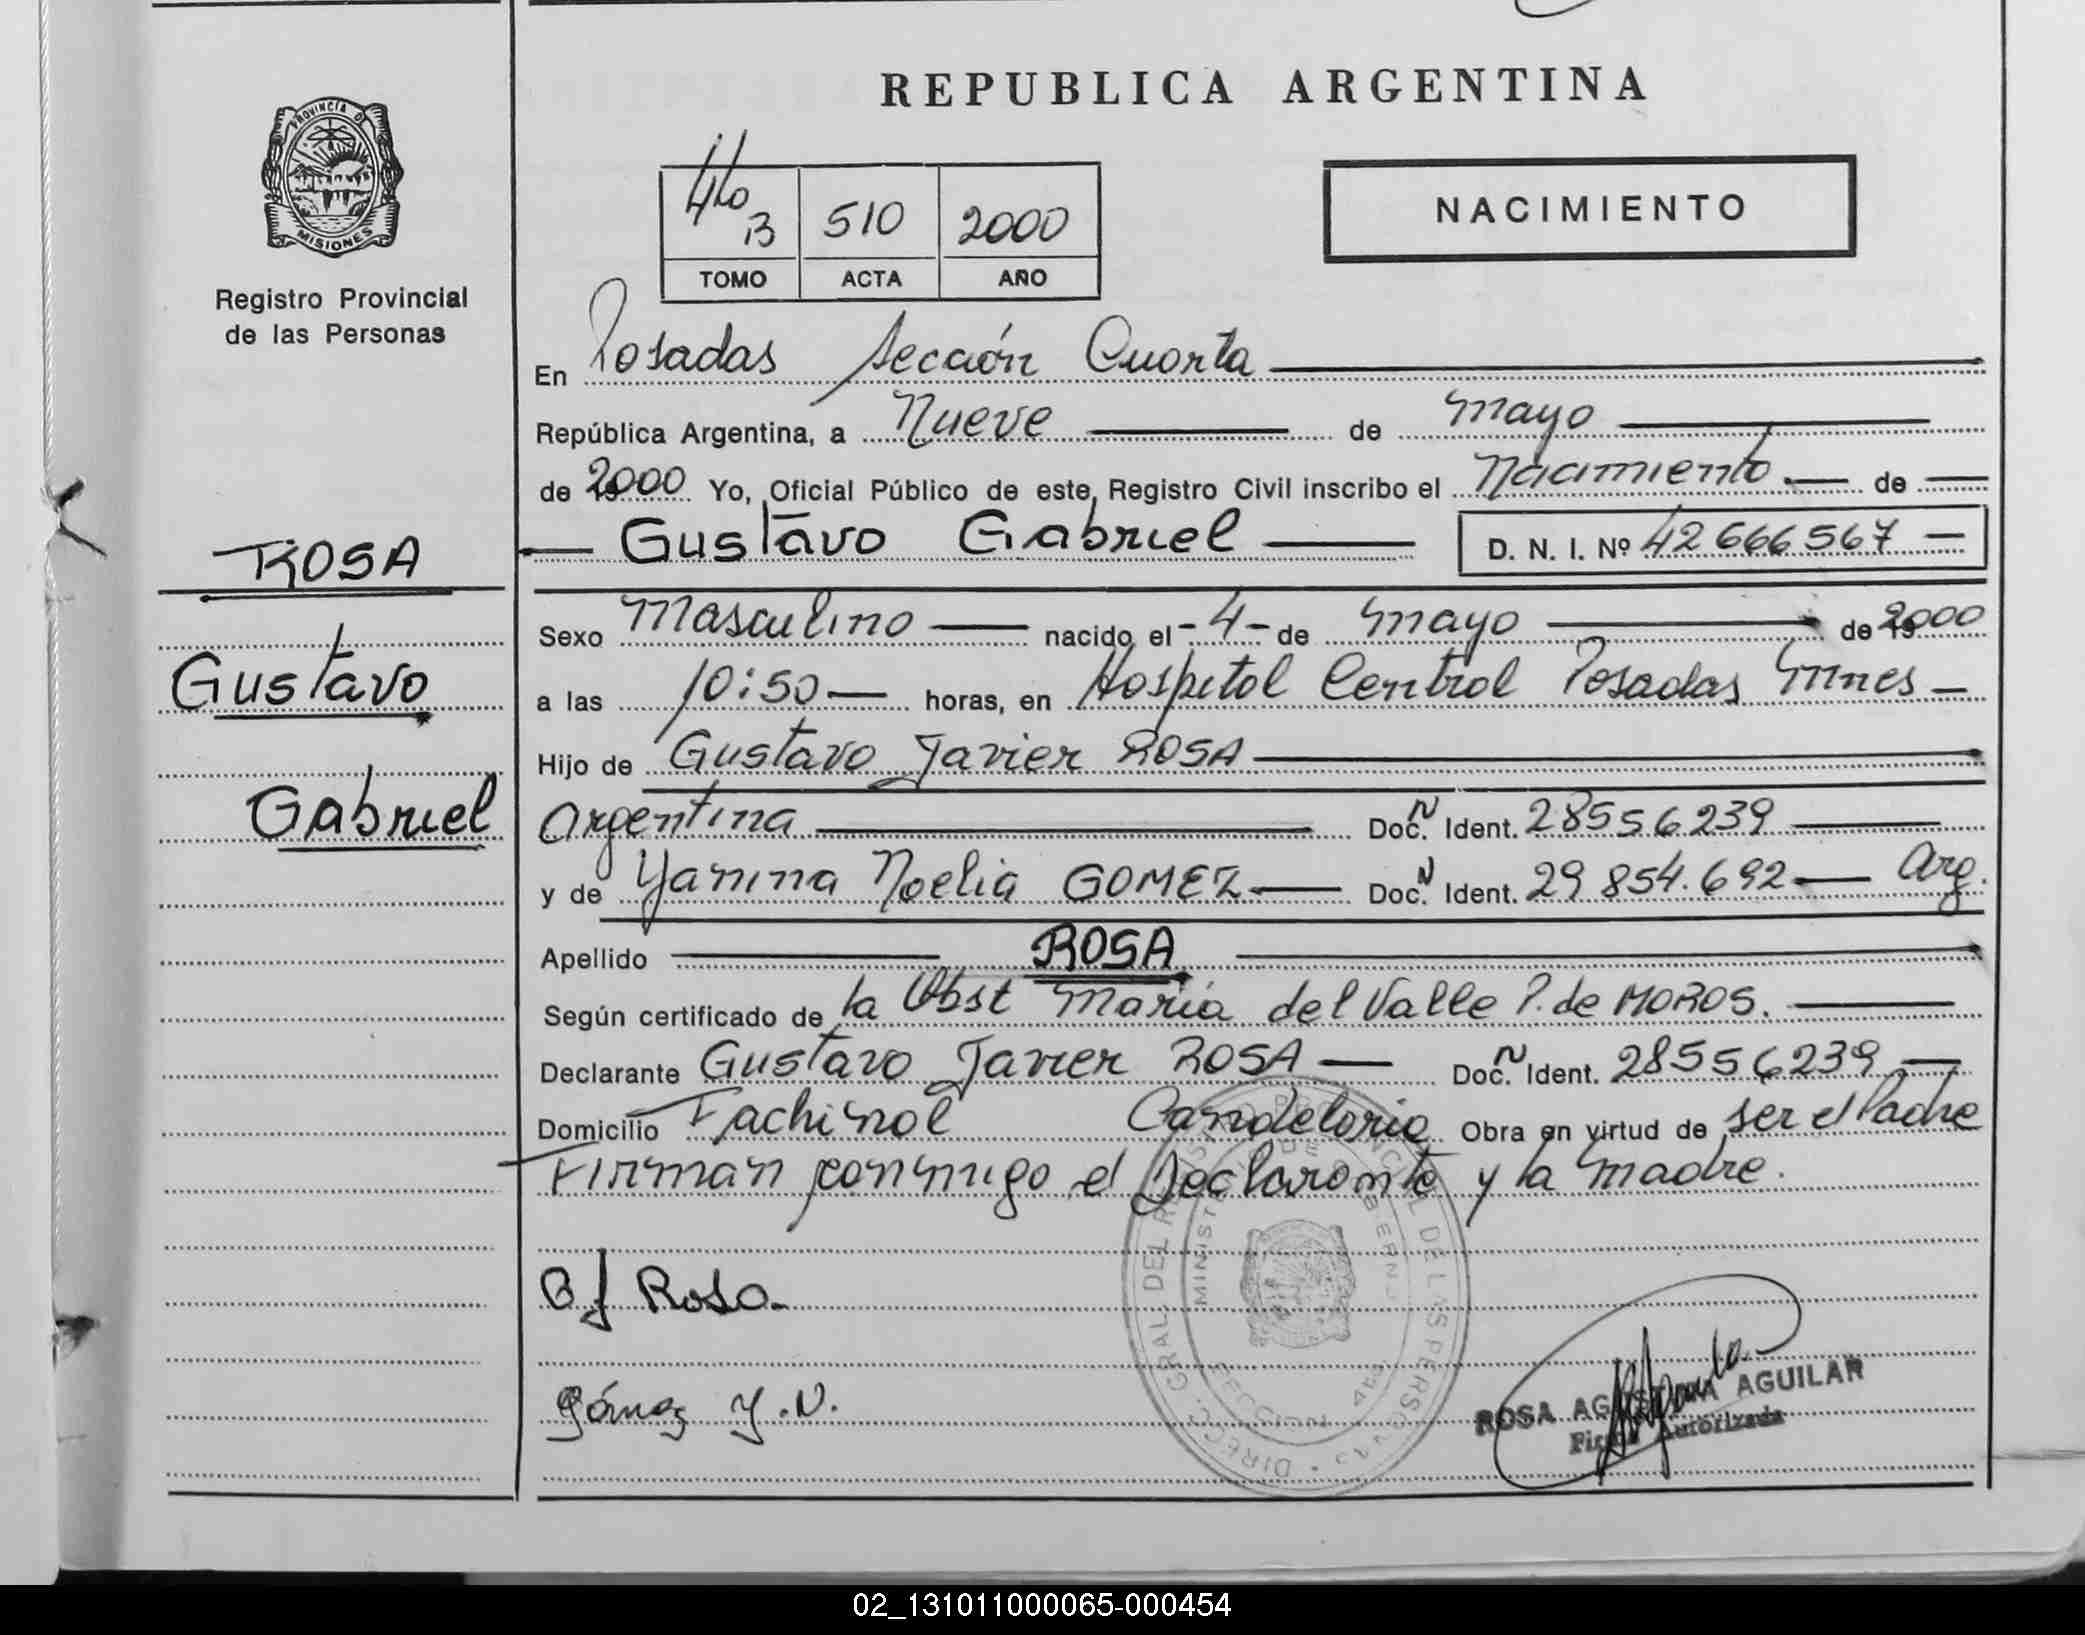 REPUBLICA ARGENTINA
PROVINCIA DE
MISIONES
Registro Provincial
de las Personas
4to B 510 2000
TOMO ACTA AÑO
NACIMIENTO
En Posadas Sección Cuarta
República Argentina, a Nueve de Mayo
de 2000 Yo, Oficial Público de este Registro Civil inscribo el Nacimiento de
Gustavo Gabriel D. N. I. Nº 42 666 567
ROSA
Gustavo
Gabriel
Sexo Masculino nacido el -4- de Mayo de 2000
a las 10:50 horas, en Hospital Central Posadas Mnes
Hijo de Gustavo Javier ROSA
Argentina Doc. N Ident. 28556239
y de Yanina Noelia GOMEZ Doc. N Ident. 29 854.692 Arg.
Apellido ROSA
Según certificado de la Obst Maria del Valle P. de MOROS.
Declarante Gustavo Javier ROSA Doc. N Ident. 28556239
Domicilio Candelaria Obra en virtud de ser el Padre
Firman conmigo el Declarante y la Madre.
G J Rosa.
Gómez Y.N.
DIRECC. GRAL. DEL REGISTRO PROVINCIAL DE LAS PERSONAS
MINISTERIO DE GOBIERNO
ROSA AGUSTINA AGUILAR
Firma Autorizada
02_131011000065-000454